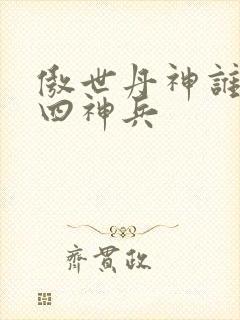 傲世丹神誰
四神兵
齊貫政